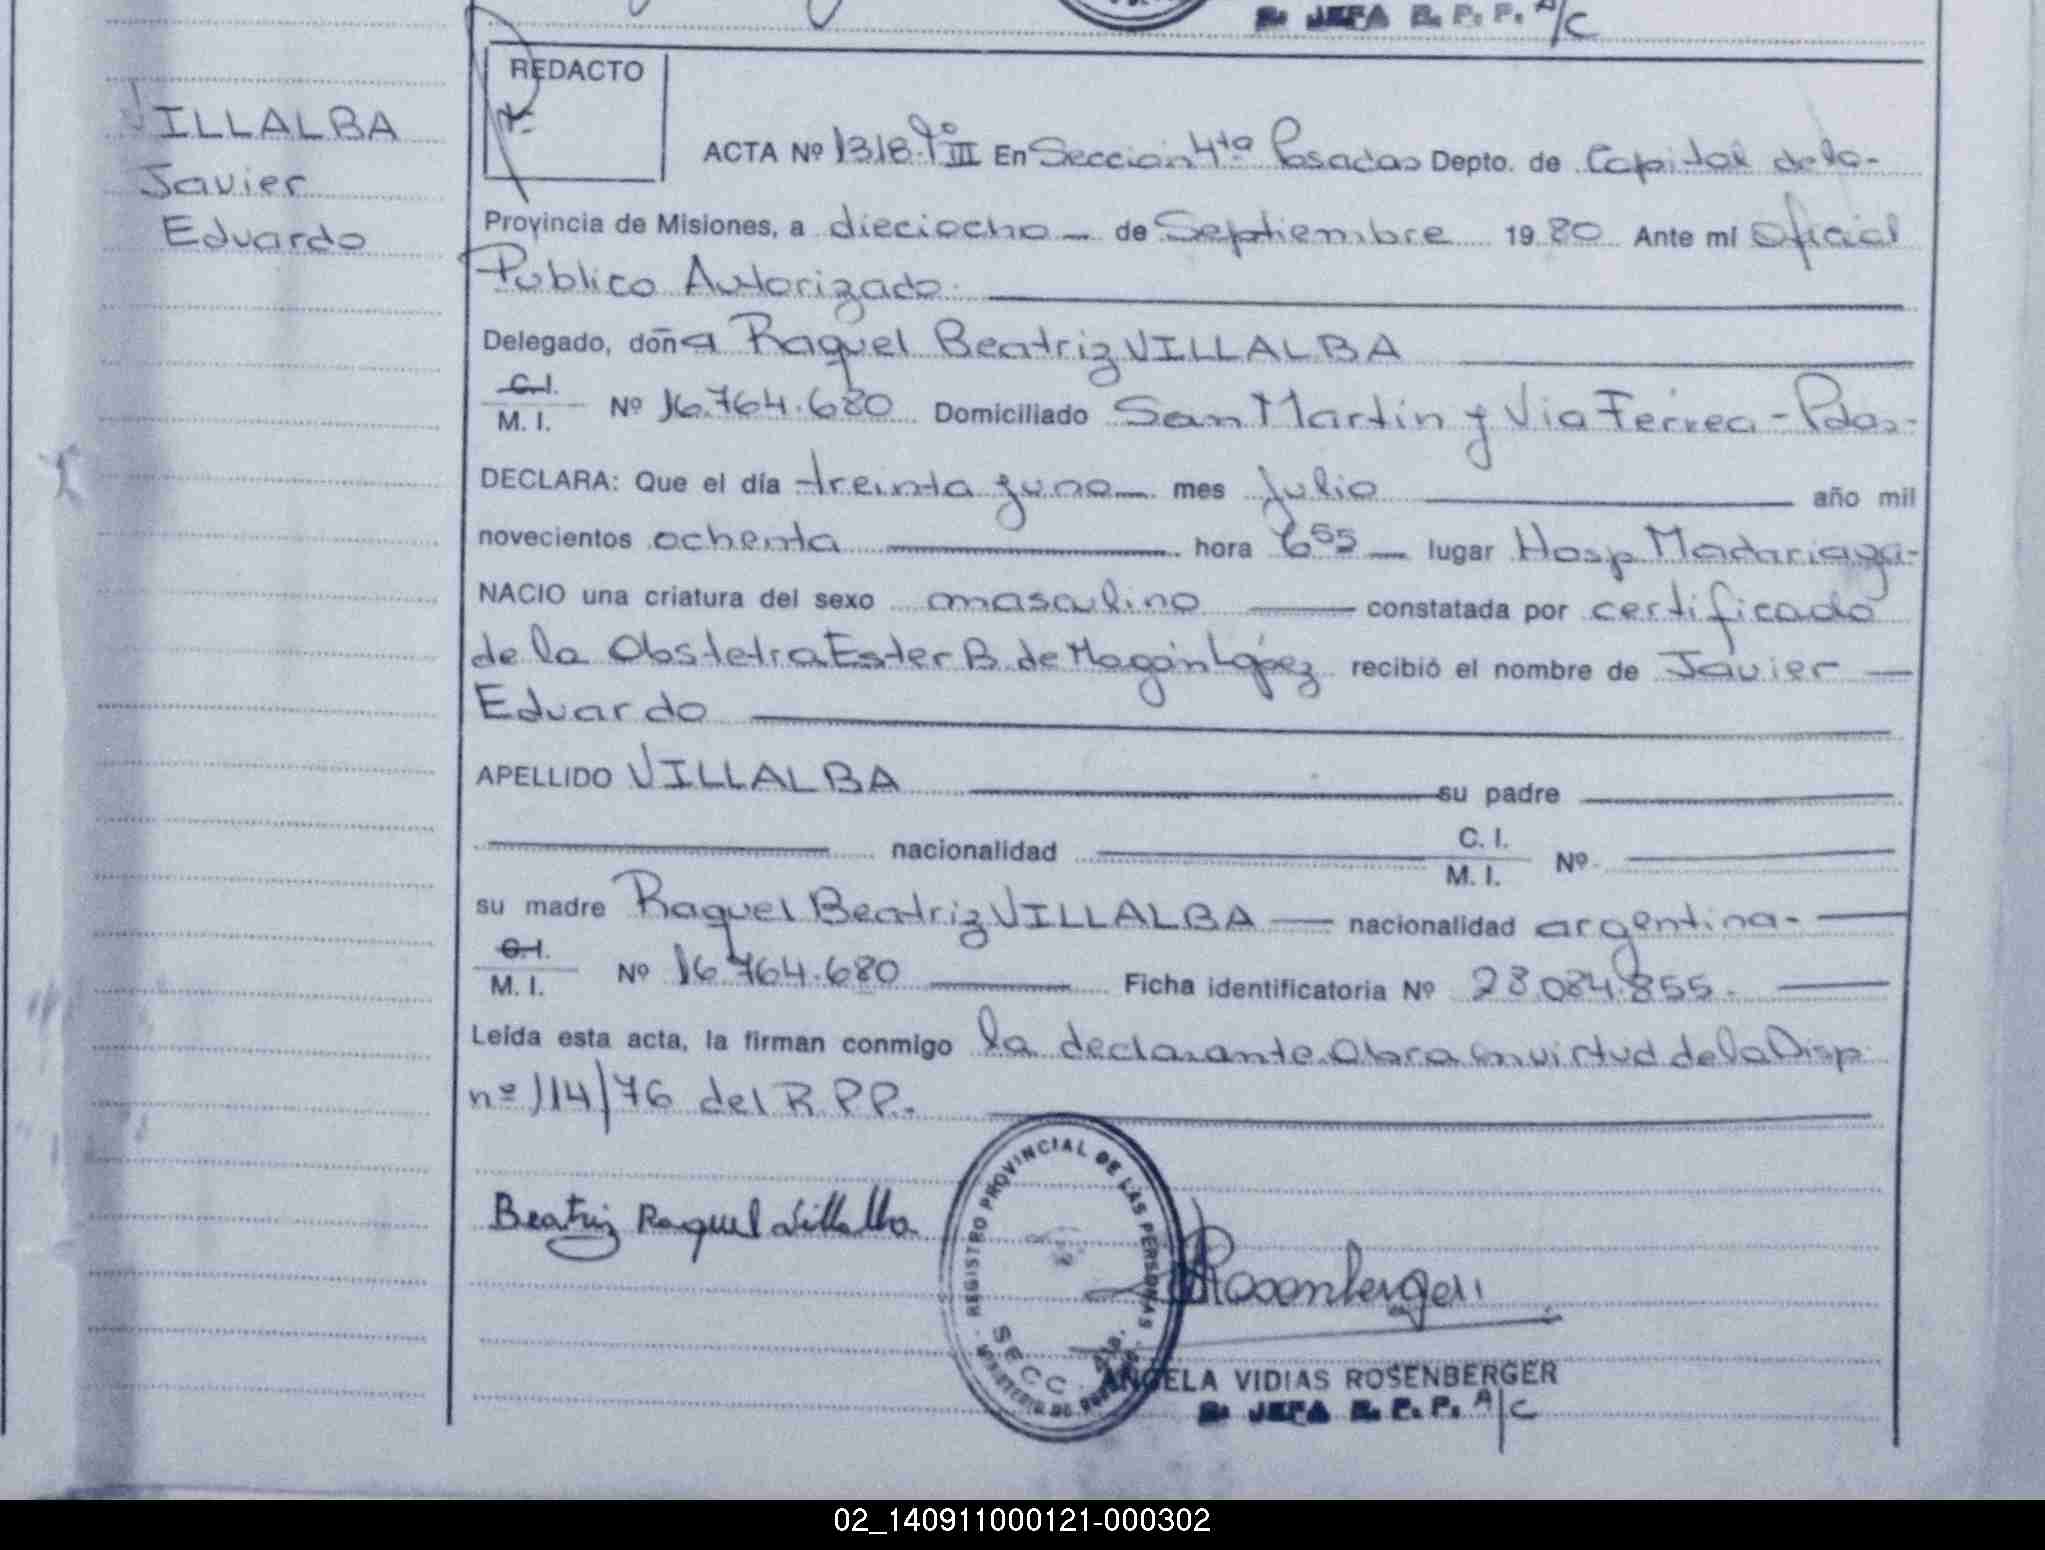 S. JEFA R. P. P. A/C
REDACTO
VILLALBA
Javier
Eduardo
ACTA Nº 1318 Tº III En Sección 4ta Posadas Depto. de Capital de la-
Provincia de Misiones, a dieciocho — de Septiembre 19 80 Ante mí Oficial
Publico Autorizado.
Delegado, doña Raquel Beatriz VILLALBA
C. I.
M. I. Nº 16.764.680 Domiciliado San Martin y Via Ferrea - Pdas-
DECLARA: Que el día treinta y uno — mes Julio año mil
novecientos ochenta hora 6 55 — lugar Hosp Madariaga-
NACIO una criatura del sexo masculino constatada por certificado
de la Obstetra Ester B. de López recibió el nombre de Javier —
Eduardo
APELLIDO VILLALBA su padre
nacionalidad C. I. M. I. Nº
su madre Raquel Beatriz VILLALBA — nacionalidad argentina-
C. I.
M. I. Nº 16.764.680 Ficha identificatoria Nº 28.084.855.
Leída esta acta, la firman conmigo la declarante. Obra en virtud de la Disp
nº 114/76 del R.P.P.
Beatriz Raquel Villalba
REGISTRO PROVINCIAL DE LAS PERSONAS
SECC. 4ta.
MINISTERIO DE
Rosenberger
ANGELA VIDIAS ROSENBERGER
S. JEFA R. P. P. A/C
02_140911000121-000302